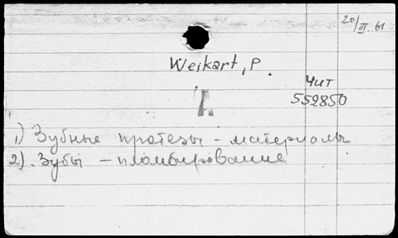 20/III.61
Weikart, P.
Чит
552850
1) Зубные протезы - материалы
2) Зубы - пломбирование